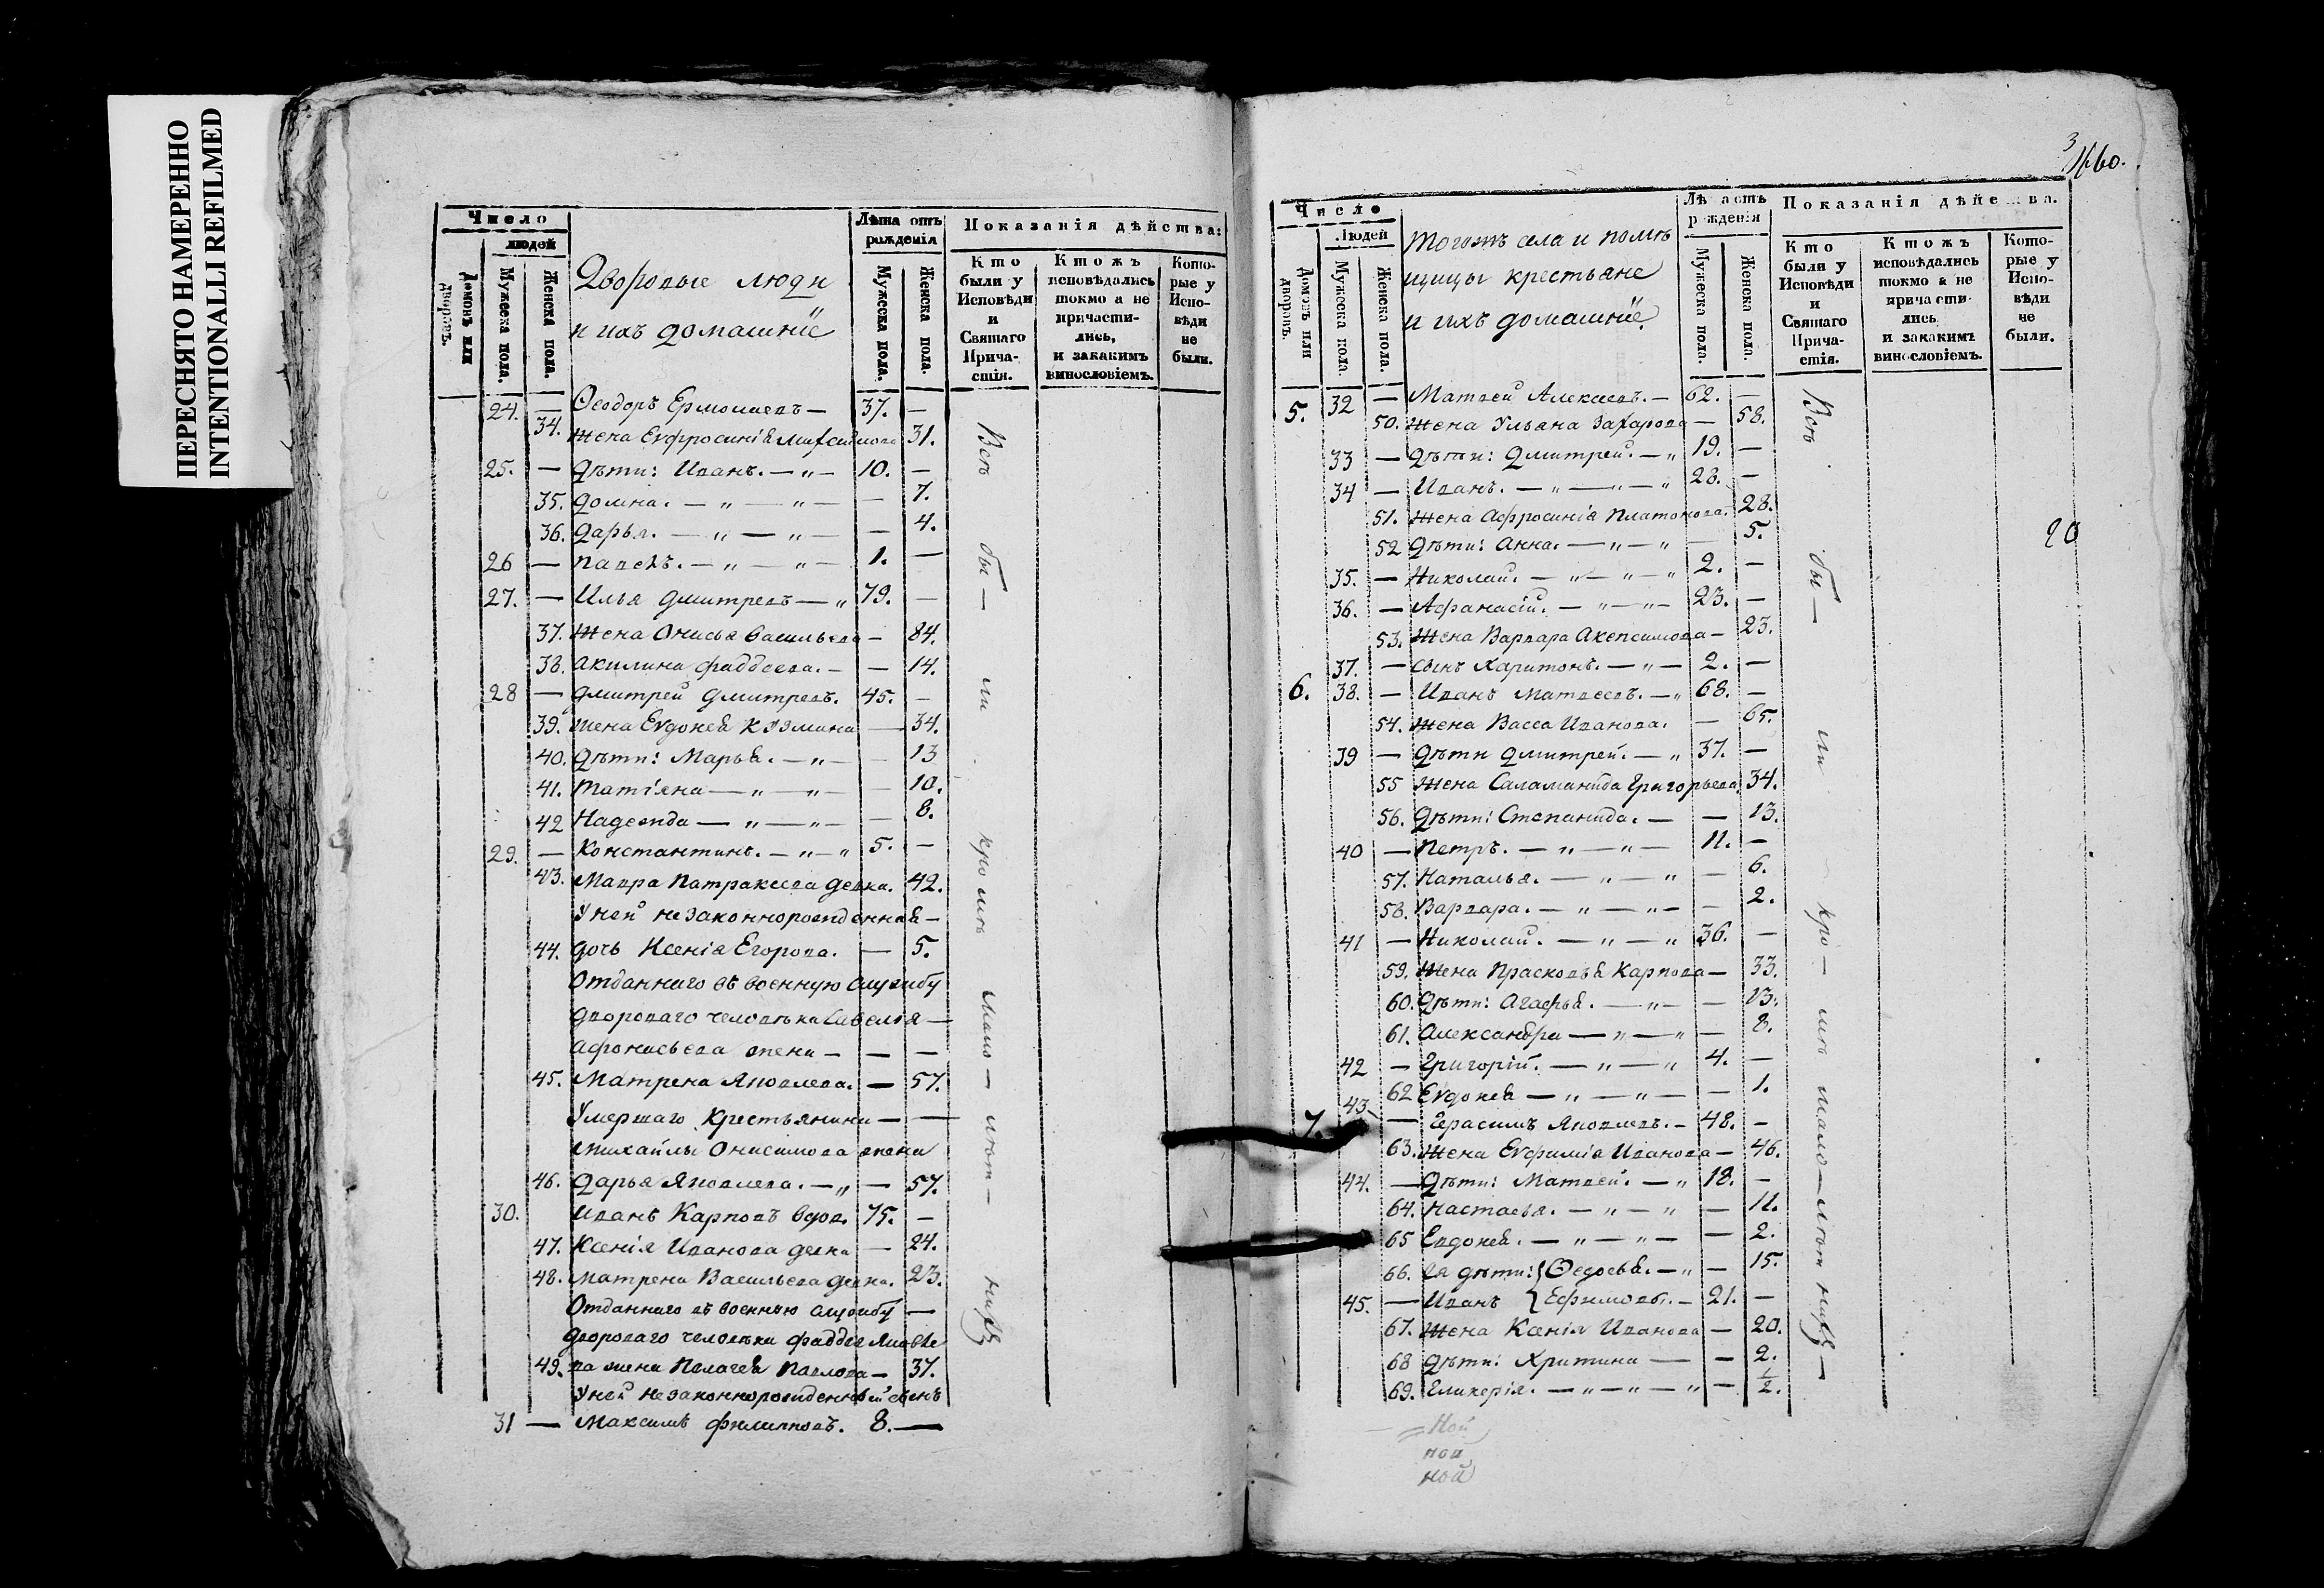 ПЕРЕСНЯТО НАМЕРЕННО
INTENTIONALLI REFILMED
Число
людей
Домовъ или дворовъ.
Мужеска пола.
Женска пола.
Дворовые люди
и ихъ домашнїе
Лѣта отъ рожденїя
Мужеска пола.
Женска пола.
Показанїя дѣйства:
Кто были у Исповѣди и Святаго Причастїя.
Ктожъ исповѣдались токмо а не причастились, и закакимъ винословїемъ.
Которые у Исповѣди не были.
24. — Ѳеодоръ Ермолаевъ — 37. —
34. жена Евфросинїя 31.
25. — дѣти: Иванъ. — „ — 10. —
35. домна. — „ — „ — — 7.
36. дарья. — „ — „ — — 4.
26 — павелъ. — „ — „ — 1. —
27. — Илья дмитревъ — „ 79. —
37. жена Онисья васильева — 84.
38. акилина фаддеева. — — 14.
28 — дмитрей дмитревъ. 45. —
39. жена Евдокея Кузмина — 34.
40. дѣти: Марья. — „ — — 13
41. татїяна — „ — „ — — 10.
42 Надежда — „ — „ — — 8.
29. — Константинъ. — „ — „ 5. —
43. Мавра Патракеева девка. 42.
У ней незаконнорожденная —
44. дочь Ксенїя Егорова. — 5.
Отданнаго въ военную службу
двороваго человѣка Савелїя —
афонасьева жена — — —
45. Матрена Яковлева. — 57.
Умершаго крестьянина — —
михайлы Онисимова жена
46. дарья Яковлева. — „ — 57.
30. Иванъ Карповъ вдов. 75. —
47. Ксенїя Иванова девка — 24.
48. матрена Васильева девка. 23.
Отданнаго въ военную службу —
двороваго человѣка фаддея Яковле
49. ва жена Пелагея Павлова — 37.
У ней незаконнорожденной сынъ
31 — Максимъ филиповъ. 8. —
Всѣ бы — ли кромѣ мало — лѣт — нихъ
3
1660.
Число
Людей
Домовъ или дворовъ.
Мужеска пола.
Женска пола.
Тогожъ села и помѣ
щицы крестьяне
и ихъ домашнїе.
Лѣ а отъ р жденїя
Мужеска пола.
Женска пола.
Показанїя дѣйс ва.
Кто были у Исповѣди и Святаго Причастїя.
Ктожъ исповѣдались токмо а не причастились и закакимъ винословїемъ.
Которые у Исповѣди не были.
5. 32 — Матвей Алексеевъ. — 62. —
50. жена Ульяна Захарова — 58.
33 — дѣти: дмитрей. — „ 19. —
34 — Иванъ. — „ — „ — „ 28. —
51. жена Афросинїя Платонова. 28.
52 дѣти: Анна. — „ — „ — 5.
35. — Николай. — „ — „ — „ 2. —
36. — Афанасїй. — „ — „ — 23. —
53. жена Варвара Акепсимова — 23.
37. — сынъ Харитонъ. — „ — 2. —
6. 38. — Иванъ Матвеевъ. — „ 68. —
54. жена Васса Иванова. — 65.
39 — дѣти дмитрей. — „ 37. —
55 жена Саламанида Григорьева. 34.
56. дѣти: Степанида. — — 13.
40 — Петръ. — „ — „ — 11. —
57. Наталья. — „ — „ — 6.
58. Варвара. — „ — „ — — 2.
41 — Николай. — „ — „ 36. —
59. жена Прасковья Карпова — 33.
60. дѣти: агафья. — „ — — 13.
61. александра — „ — „ — 8.
42 — Григорїй. — „ — „ 4. —
62 Евдокея — „ — „ — — 1.
7. 43. — Герасимъ Яковлевъ. — 48. —
63. жена Евфимїя Иванова — 46.
44. — дѣти: Матвей. — „ 18. —
64. настасья. — „ — „ — 11.
65 Евдокея. — „ — „ — — 2.
66. Ея дѣти: { Ѳедосья. — „ — 15.
45. — Иванъ } Ефимовы. — 21. —
67. жена Ксенїя Иванова — 20.
68 дѣти: Христина — — 2.
69. Гликерїя. — „ — „ — „ — 1/2.
Всѣ бы — ли кро — мѣ мало — лѣт нихъ —
20
Ной
ной